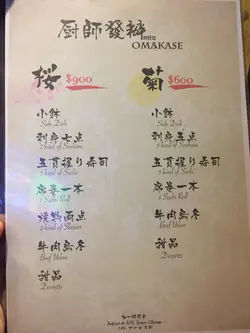 厨師發辦
OMAKASE
桜 $900
小鉢
Side Dish
刺身七点
7 kind of Sashimi
五貫握り寿司
5 kind of Sushi
席巻一本
1 Sushi Roll
焼物両点
2 kind of
牛肉烏冬
Beef Udon
甜品
Desserts
菊 $600
小鉢
Side Dish
刺身五点
5 kind of Sashimi
五貫握り寿司
5 kind of Sushi
席巻一本
1 Sushi Roll
牛肉烏冬
Beef Udon
甜品
Desserts
Subject to 10% Service Charge